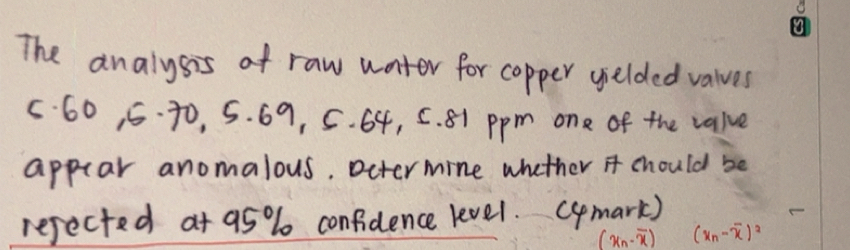 The analysis of raw water for copper yielded values
5.60, 5.70, 5.69, 5.64, 5.81 ppm one of the value
appear anomalous. Determine whether it should be
rejected at 95% confidence level. (4 mark)
(xn-x̄) (xn-x̄)²